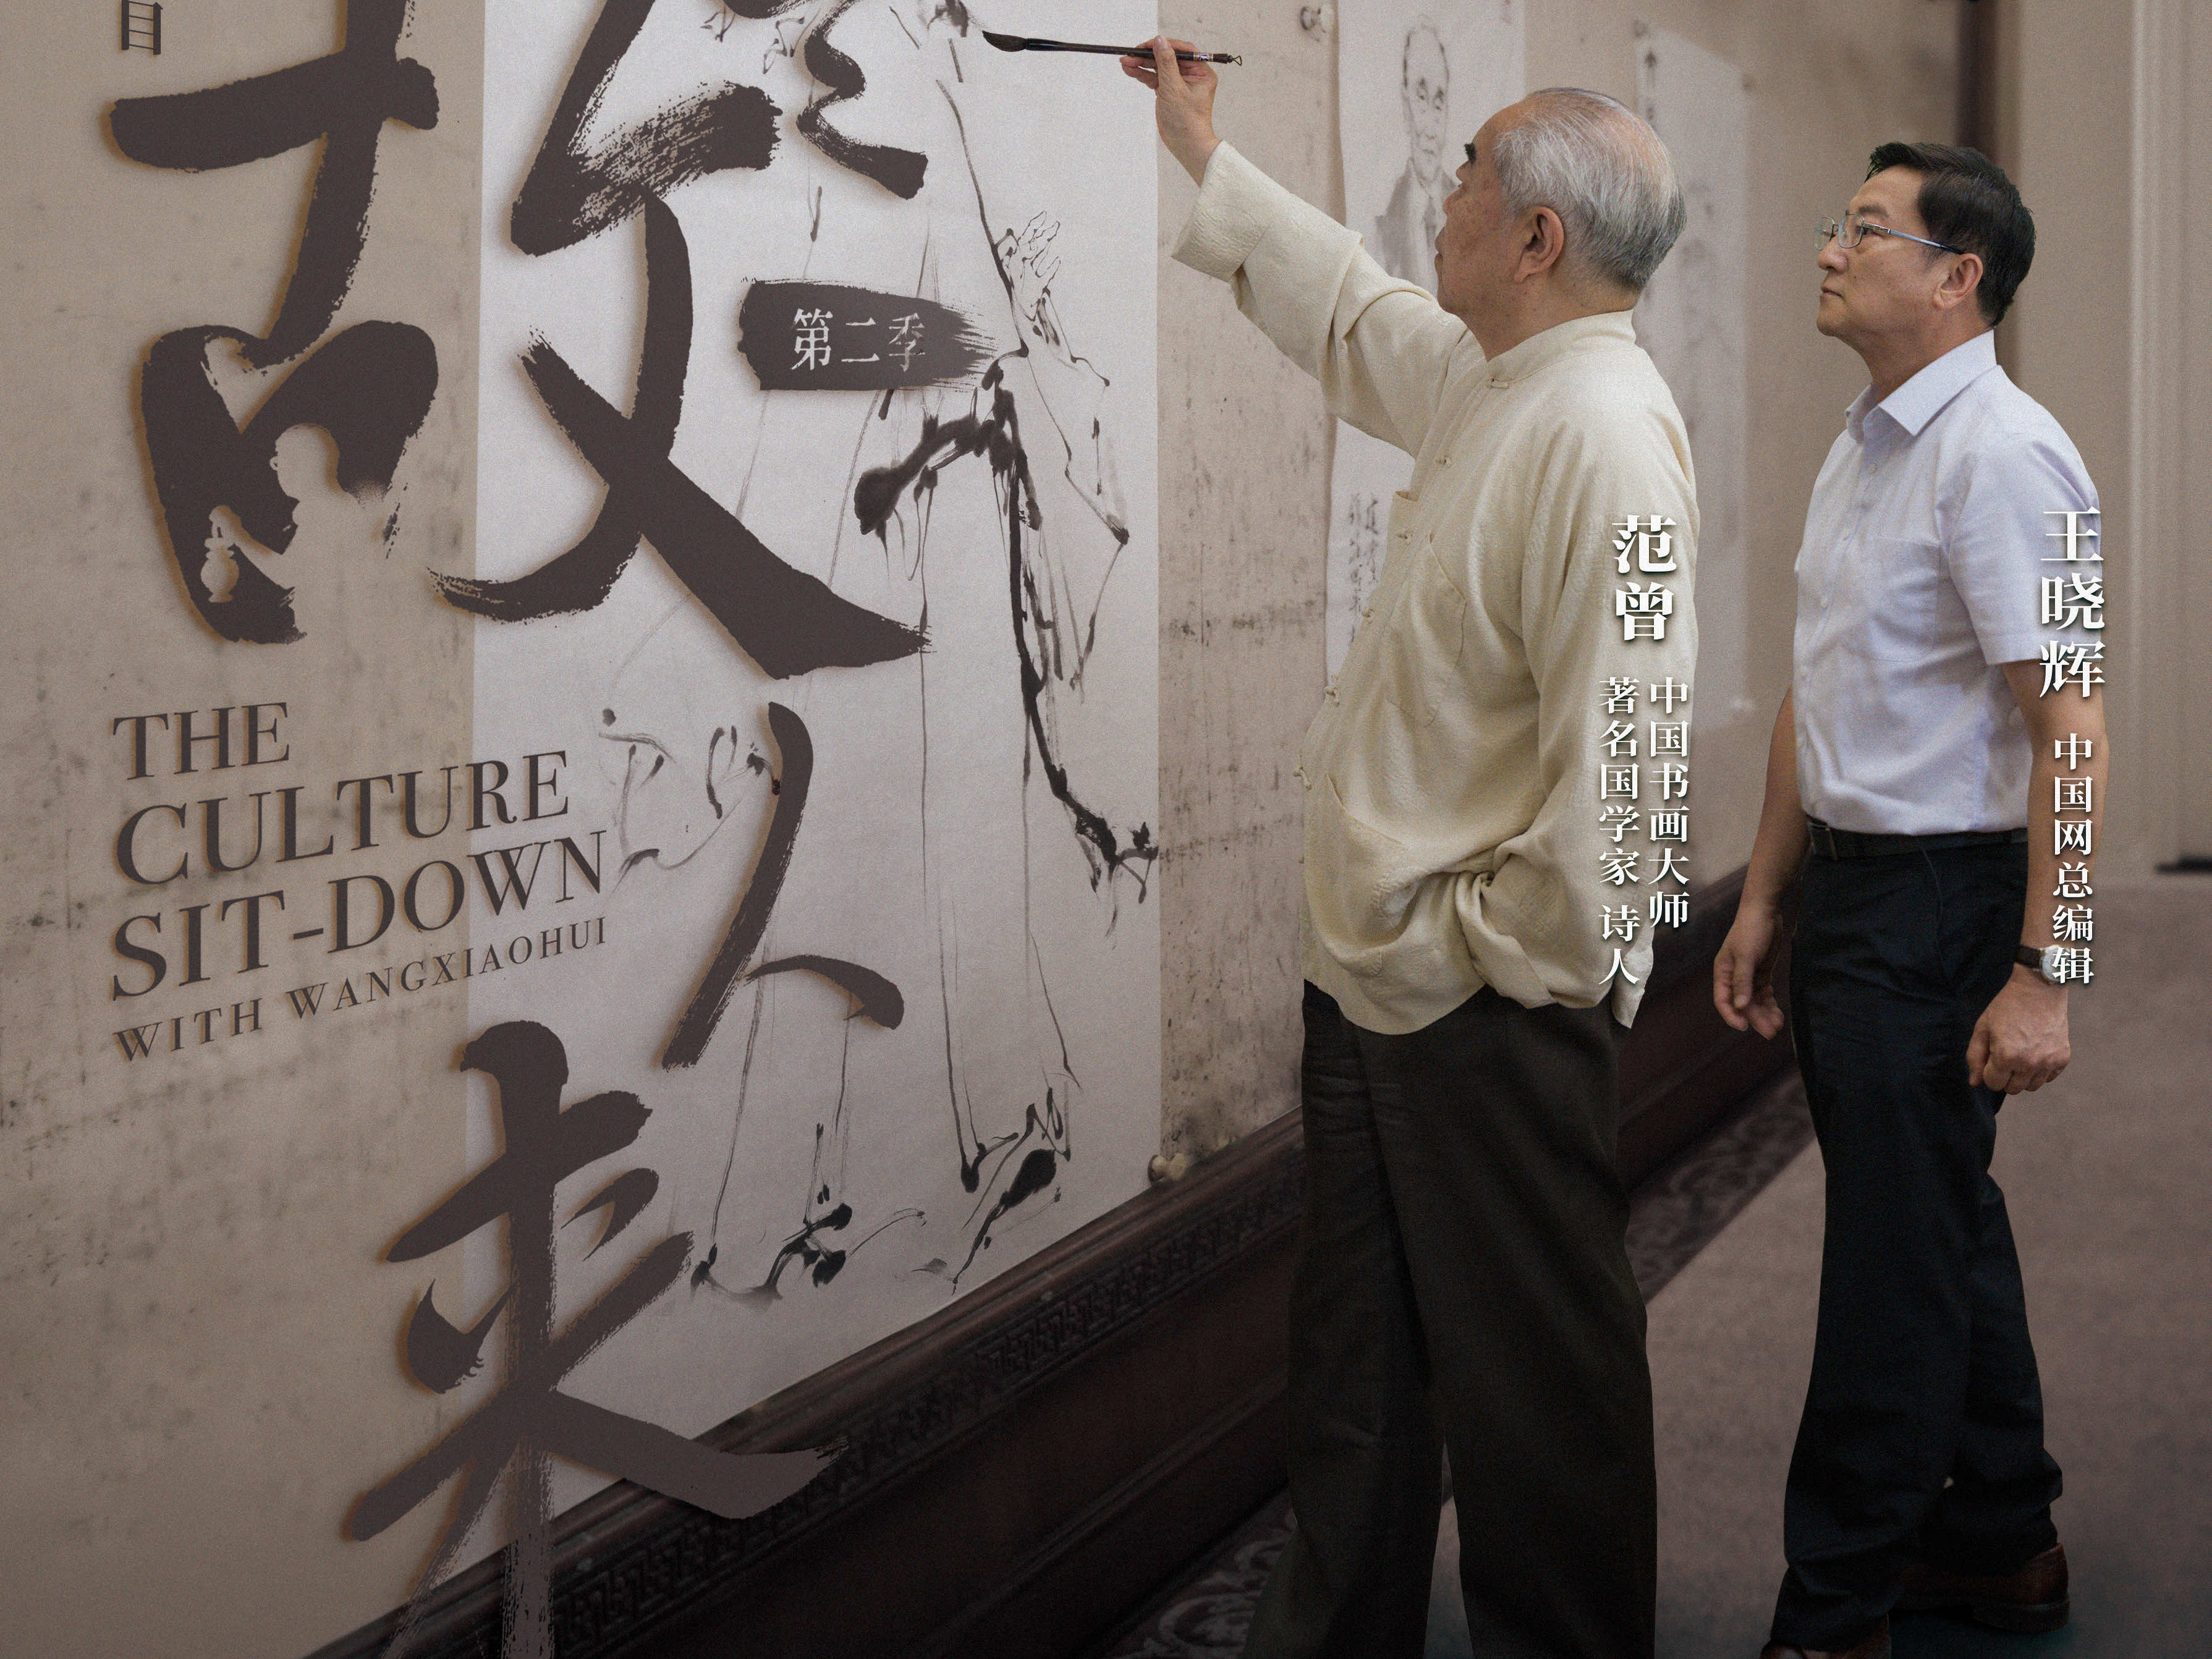 目
故人来
第二季
THE
CULTURE
SIT-DOWN
WITH WANGXIAOHUI
范曾
中国书画大师
著名国学家 诗人
王晓辉
中国网总编辑